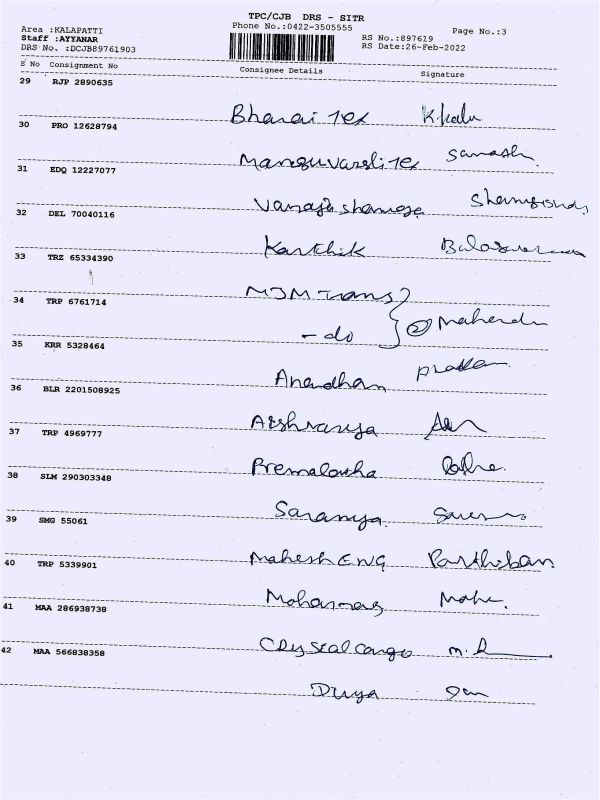 TPC/CJB DRS - SITR
Area :KALAPATTI Phone No.:0422-3505555 Page No.:3
Staff :AYYANAR RS No.:897619
DRS No. :DCJB89761903 RS Date:26-Feb-2022
S No Consignment No Consignee Details Signature
29 RJP 2890635
Bharai Tex K Kalu
30 PRO 12628794
31 EDQ 12227077
32 DEL 70040116
Karthik
33 TRZ 65334390
MJM Trans
34 TRP 6761714
- do ② Mahendu
35 KRR 5328464
Anandham
36 BLR 2201508925
Aishwarya
37 TRP 4969777
Premalatha
38 SLM 290303348
Saranya
39 SMG 55061
Mahesh ENG Parthiban
40 TRP 5339901
Mohanraj
41 MAA 286938738
Crystal cargo
42 MAA 566838358
Divya